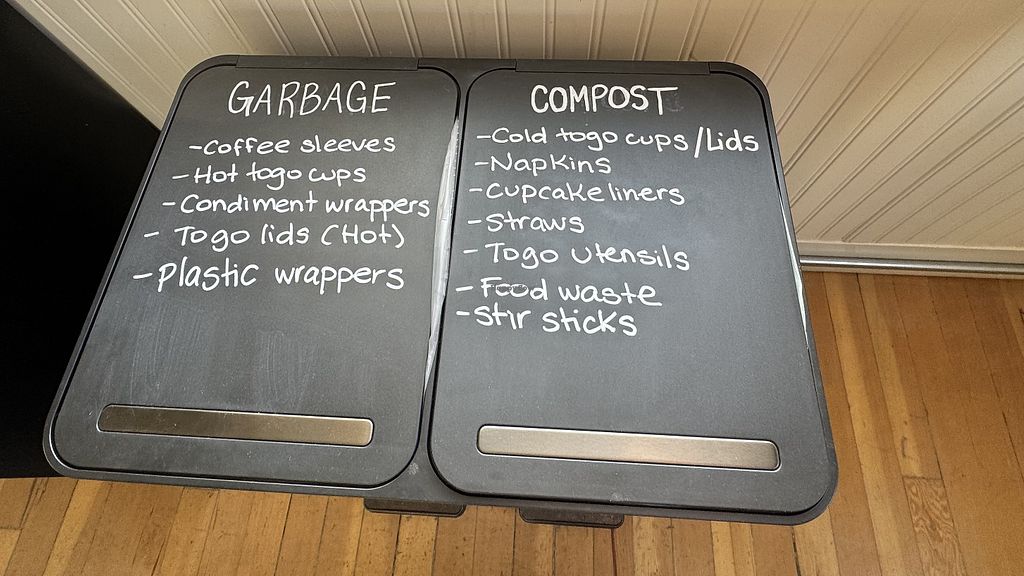 GARBAGE
-Coffee sleeves
-Hot togo cups
-Condiment wrappers
-Togo lids (Hot)
-Plastic wrappers
COMPOST
-Cold togo cups/Lids
-Napkins
-Cupcake liners
-Straws
-Togo Utensils
-Food waste
-Stir sticks